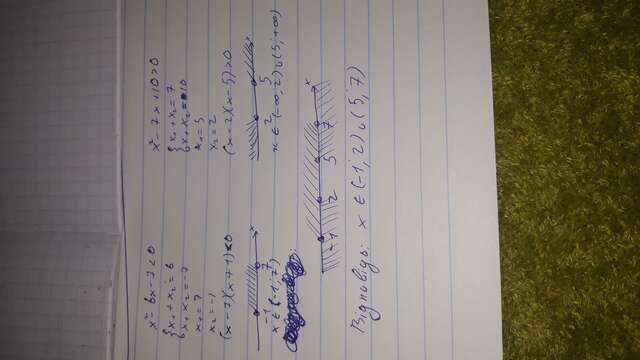 x² - 6x - 7 < 0
{ x₁ + x₂ = 6
{ x₁ x₂ = -7
x₁ = 7
x₂ = -1
(x - 7)(x + 1) < 0
-1 7 x
x ∈ (-1; 7)
x² - 7x + 10 > 0
{ x₁ + x₂ = 7
{ x₁ x₂ = 10
x₁ = 5
x₂ = 2
(x - 2)(x - 5) > 0
2 5 x
x ∈ (-∞; 2) ∪ (5; +∞)
-1 2 5 7 x
Відповідь: x ∈ (-1; 2) ∪ (5; 7)